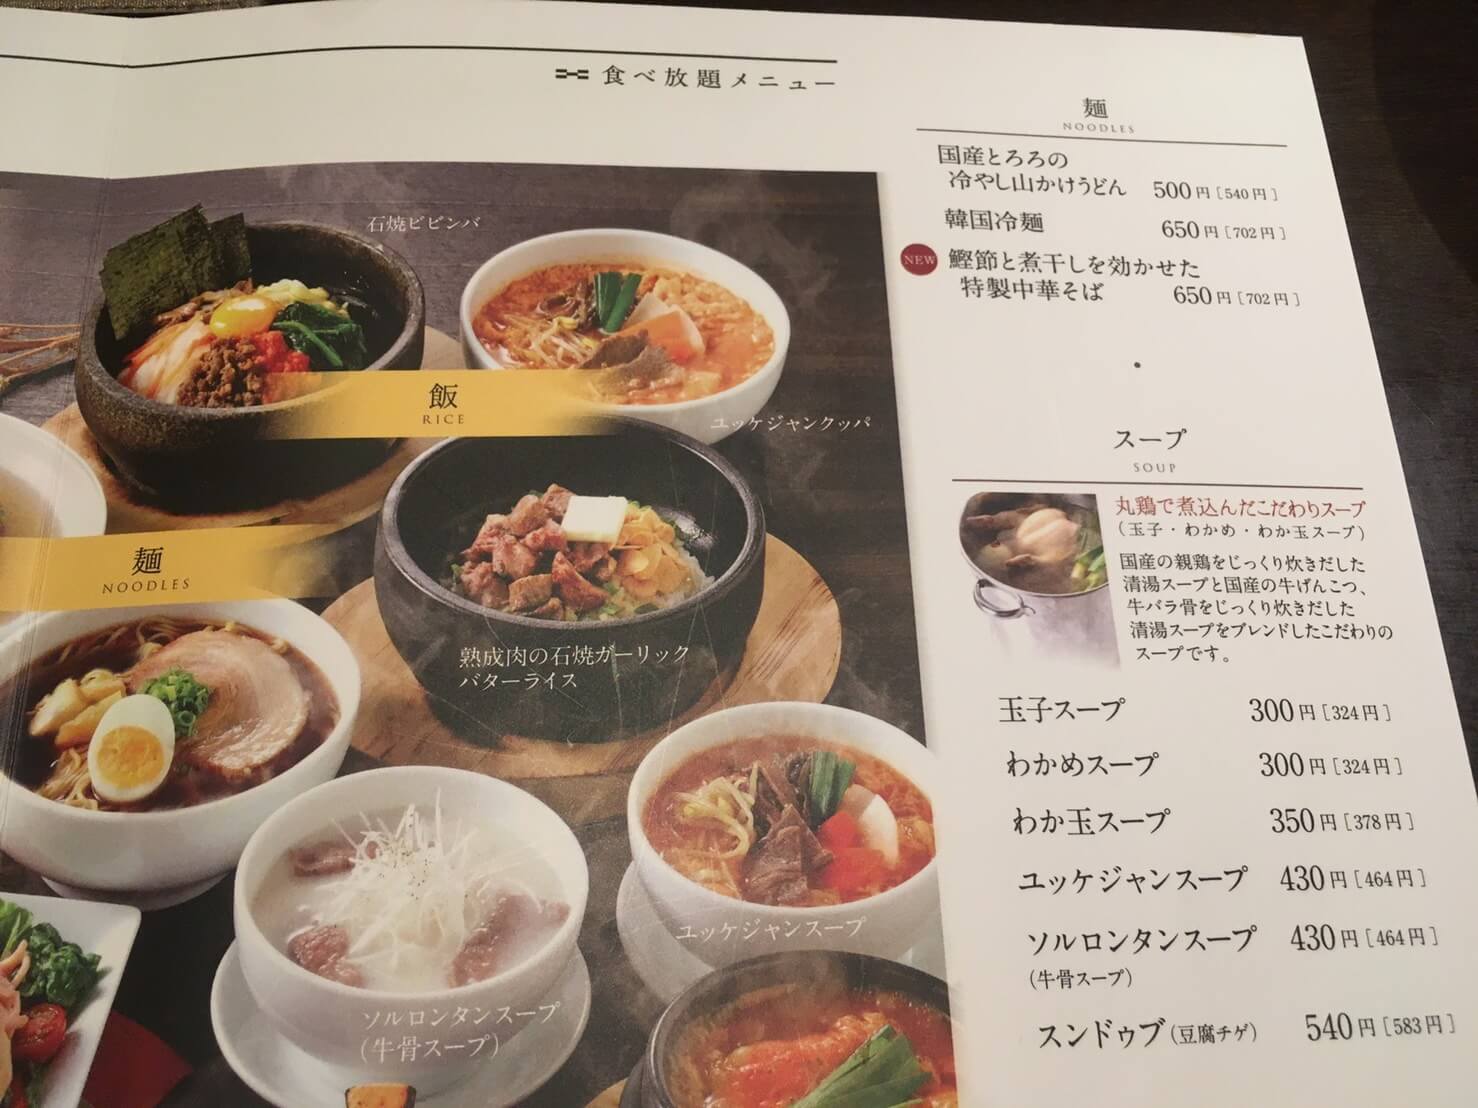 食べ放題メニュー
石焼ビビンバ
ユッケジャンクッパ
飯
RICE
麺
NOODLES
熟成肉の石焼ガーリック
バターライス
ユッケジャンスープ
ソルロンタンスープ
(牛骨スープ)
麺
NOODLES
国産とろろの
冷やし山かけうどん 500円[540円]
韓国冷麺 650円[702円]
NEW 鰹節と煮干しを効かせた
特製中華そば 650円[702円]
スープ
SOUP
丸鶏で煮込んだこだわりスープ
(玉子・わかめ・わか玉スープ)
国産の親鶏をじっくり炊きだした
清湯スープと国産の牛げんこつ、
牛バラ骨をじっくり炊きだした
清湯スープをブレンドしたこだわりの
スープです。
玉子スープ 300円[324円]
わかめスープ 300円[324円]
わか玉スープ 350円[378円]
ユッケジャンスープ 430円[464円]
ソルロンタンスープ 430円[464円]
(牛骨スープ)
スンドゥブ(豆腐チゲ) 540円[583円]